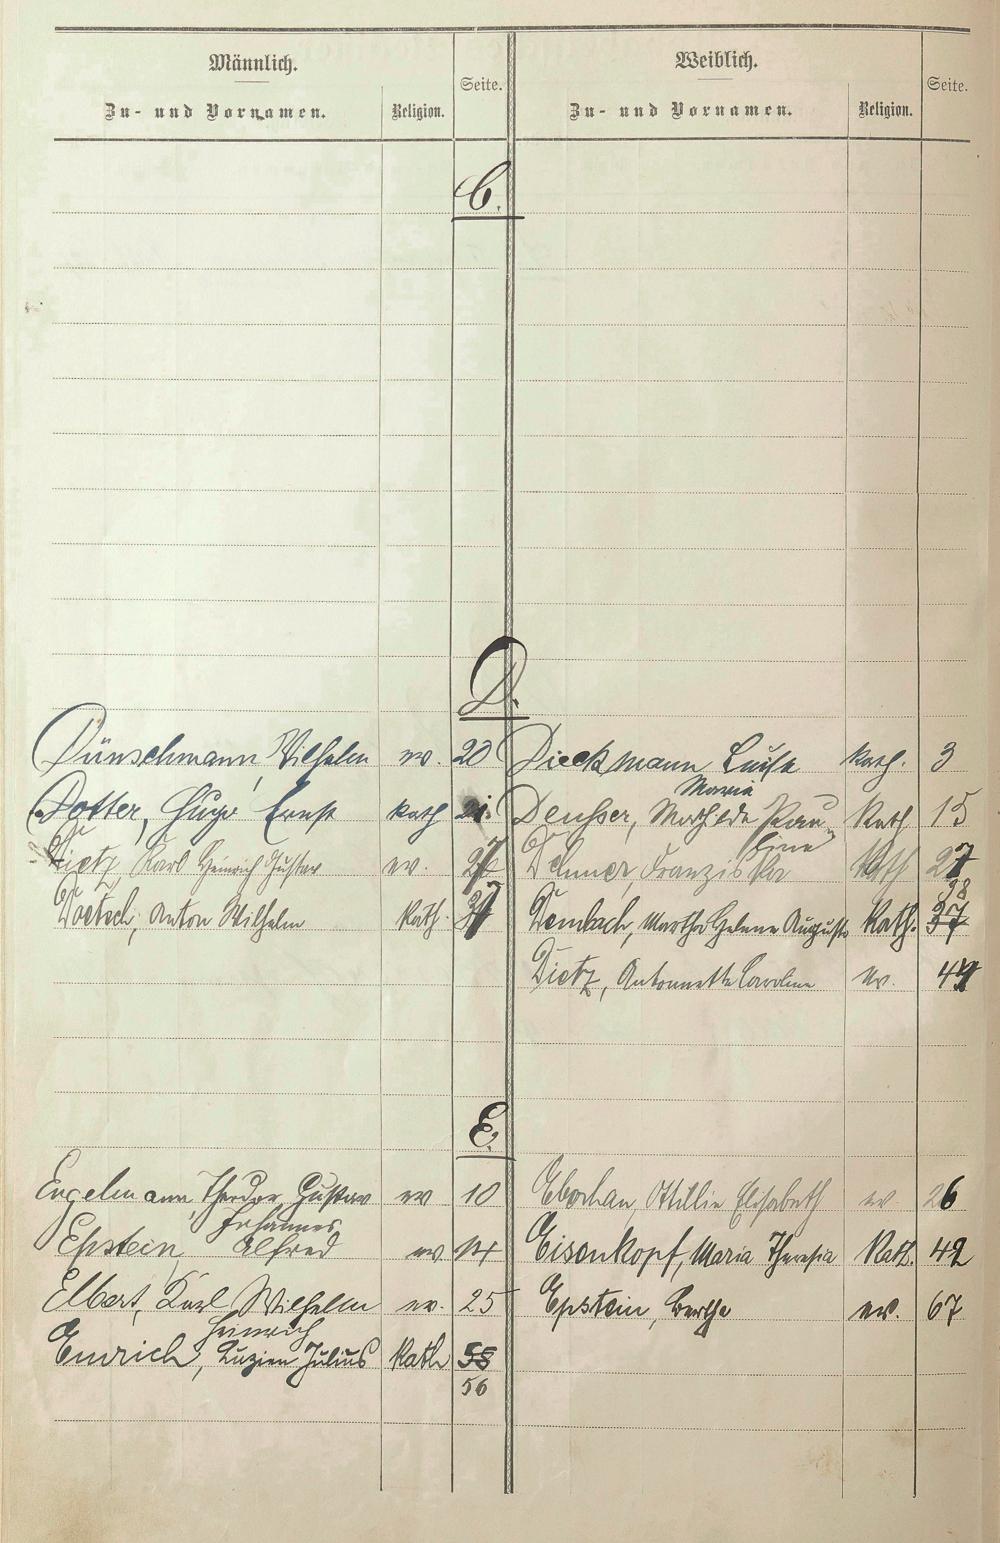 Männlich.
Zu- und Vornamen. Religion. Seite.
Weiblich.
Zu- und Vornamen. Religion. Seite.
C.
D.
Dünschmann, Wilhelm ev. 20
Dieckmann Luise kath. 3
Dotter, Hugo Ernst kath
Maria
Deusser, Mathilde Pau- Kath 15
line
Dietz, Karl Heinrich Gustav ev. 27
Dehmer, Franziska Kath 27
Doetsch, Anton Wilhelm Kath. 37
38
Dembach, Martha Helene Auguste Kath. 37
Dietz, Antonnette Caroline ev.
E.
Engelmann, Theodor Gustav ev 10
Johannes
Eborhan, Ottillie Elisabeth ev. 26
Epstein, Alfred ev. 14
Eisenkopf, Maria Theresia Kath. 42
Elbert, Karl Wilhelm ev. 25
Heinrich
Epstein, Berthe ev. 67
Emrich, Luzien Julius Kath 55
56